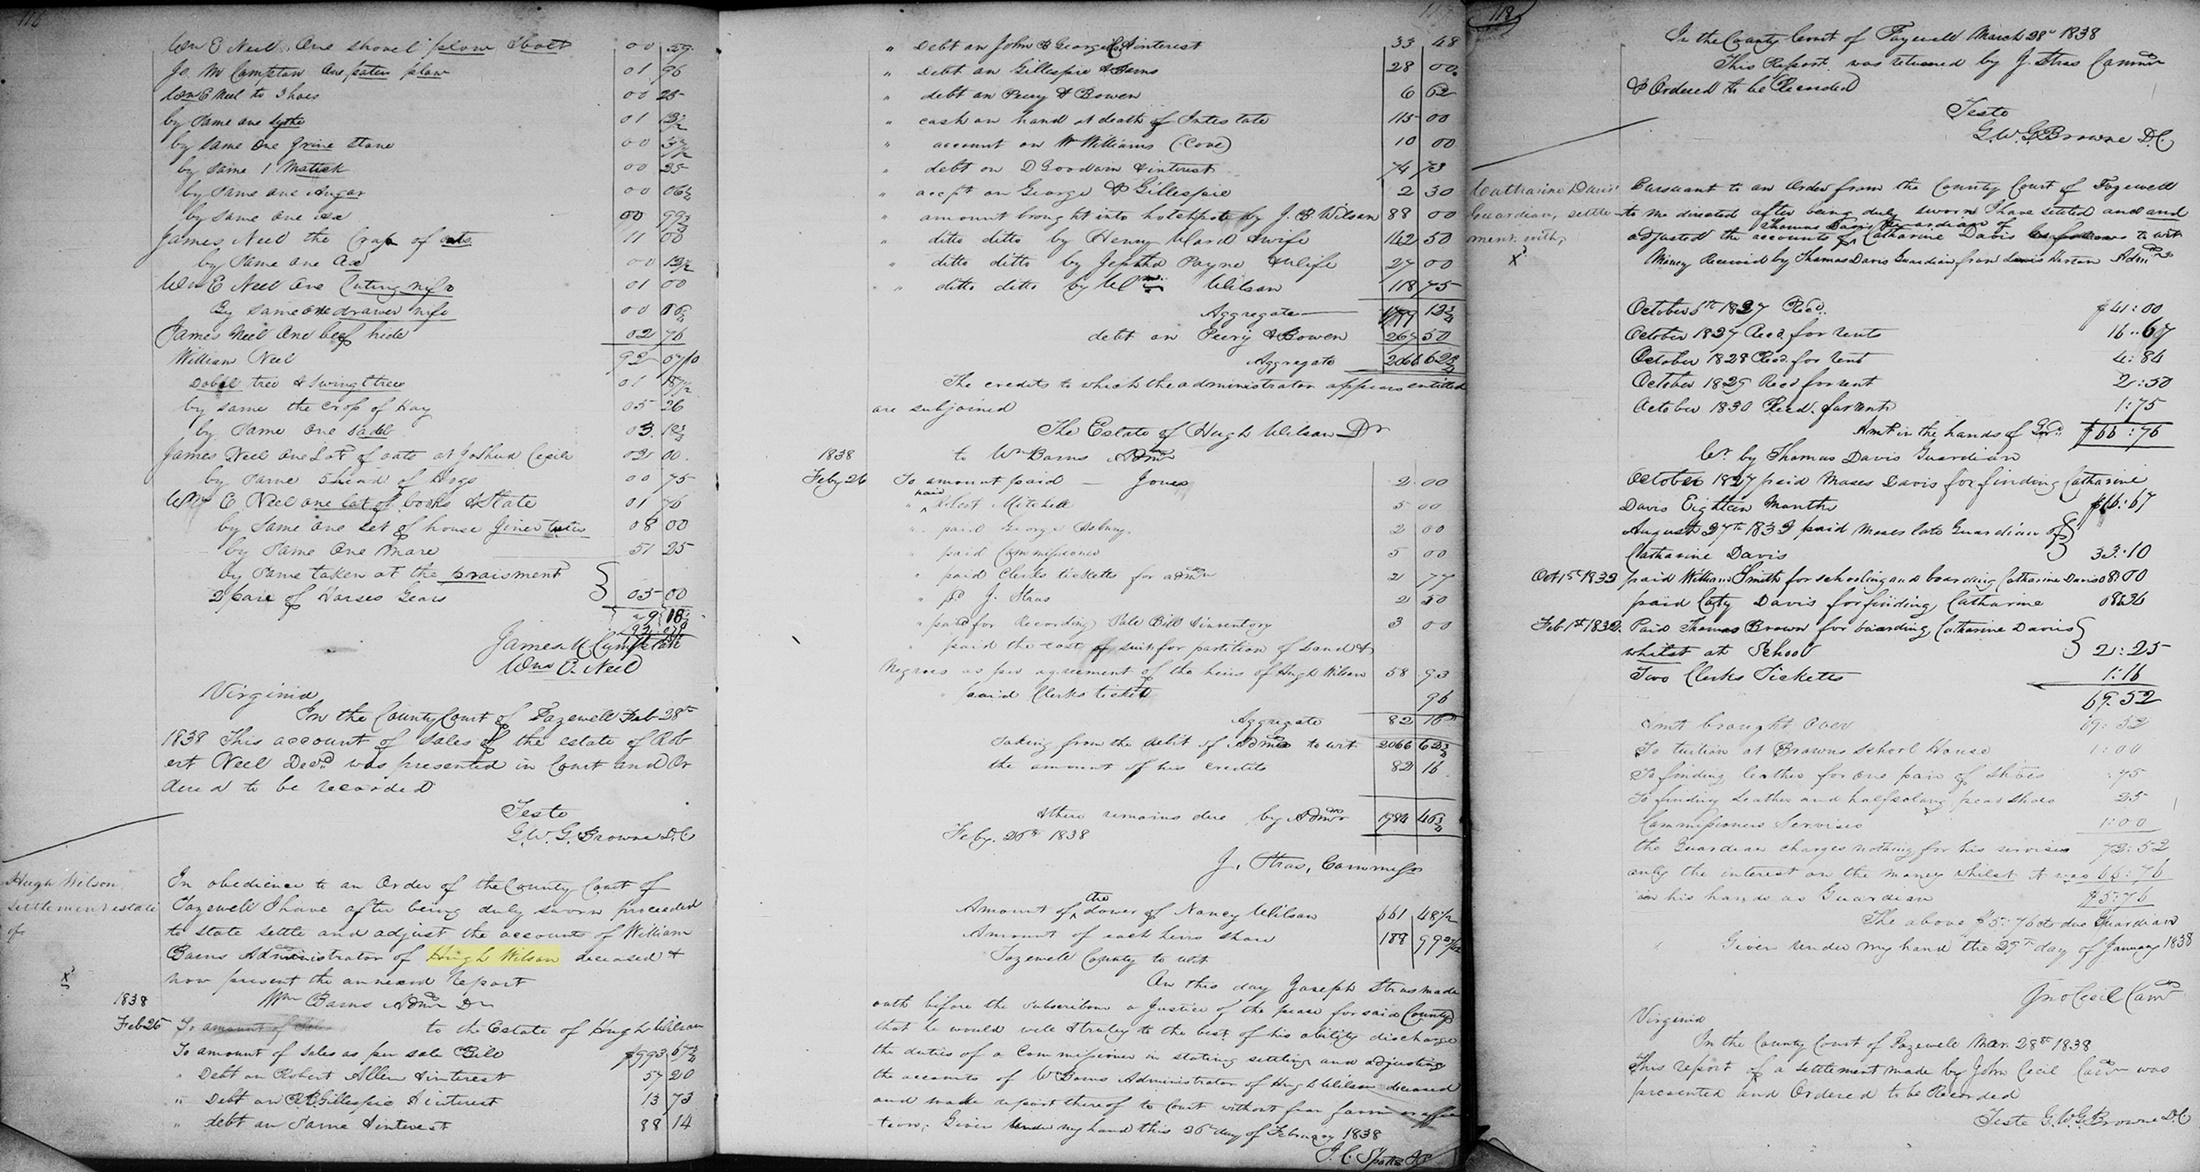 116
Wm E Neel One shovel plow & bolt 00 29
Jo. M Compton One paten plow 01 96
Wm E Neel to 3 hoes 00 25
by Same one sythe 01 31/2
by same One grine stone 00
by Same 1 Mattok 00 25
by Same one Augar 00 06 1/2
by same One axe 00
James Neel the Crop of oats 11 00
by Same one Ax 00
Wm E Neel One Cuting nife 01 00
By same one drawer nife 00
James Neel One beef hide 02 76
William Neel 92
Dobel tree & swingltree 01
by same the crop of Hay 05 26
by Same One Sadel 03. 12 1/2
James Neel One Lot of oats at Joshua Cecils 00.
by Same 5 head of Hogs 00 75
Wm E Neel one lot of books & State 01 76
by Same One set of house 08 00
by Same One Mare 51 25
by Same taken at the praisment
2 pare of Horses Gears 05 00
James M. Compton
Wm E. Neel
Virginia
In the County Court of Tazewell Feb 28th
1838 This account of Sales of the estate of Rob
ert Neel Decd was presented in Court and Or
dered to be recorded
Teste
G. W. G. Browne D.C
Hugh Wilson
settlement estate
of
X
In obedience to an Order of the County Court of
Tazewell I have after being duly sworn proceeded
to state settle and adjust the accounts of William
Barns Administrator of Hugh Wilson deceased &
now present the annexed Report
1838 Wm Barns Admr Dr
Feb 26 To amount of to the Estate of Hugh Wilson
To amount of Sales as per sale Bill $993 67 3/4
" Debt on Robert Allen & interest 57 20
" Debt on Gillespie & interest 13 73
" debt on Same & interest 88 14
" Debt on John & George & interest 33 48
" Debt on Gillespie & Barns 28 00
" debt on Peery & Bowen 6 62
" cash on hand at death of Intestate 115 00
" account on W Williams (Cove) 10 00
" debt on D Goodwin & interest 74 73
" accpt on George & Gillespie 2 30
" amount brought into hotchpot by J. B Wilson 88 00
" ditto ditto by Henry Ward & wife 142 50
" ditto ditto by Jeptha Payne & Wife 27 00
" ditto ditto by Wm Wilson 118 75
Aggregate
debt on Peery & Bowen 267 50
Aggregate 2066 62 3/4
The credits to which the administrator appears entitled
are subjoined
The Estate of Hugh Wilson Dr
1838 to Wm Barns Admr
Feby 26 To amount paid — Jones 2.00
" paid Mitchell 5 00
" paid George Asbury 2 00
" paid Commissioner 5 00
" paid Clerks ticketts for admr 2 77
" pd J. Stras 2 50
" paid for Recording Sale Bill & inventory 3 00
" paid the cost of suit for partition of Land &
Negroes as per agreement of the heirs of Hugh Wilson 58 93
" paid Clerks ticket 96
Aggregate 82 16
Taking from the debit of Admr to wit 2066 62 3/4
the amount of his credits 82 16
& there remains due by Admr 1984 46 3/4
Feby. 26th 1838
J. Stras, Commissr
Amount of the dower of Nancy Wilson 661 48 1/2
Amount of each heirs share 188
Tazewell County to wit
On this day Joseph Stras made
oath before the subscriber a Justice of the peace for said County
that he would well & truley to the best of his ability discharge
the duties of a Commissioner in stating settling and adjusting
the accounts of Wm Barns Administrator of Hugh Wilson deceased
and make report thereof to Court without fear favour or affec
-tion. Given under my hand this 26th day of February 1838
J. C. Spotts JP
118
In the County Court of Tazewell March 28th 1838
This Report was returned by J. Stras Commr
& Ordered to be Recorded
Teste
G. W. G. Browne D.C
Catharine Davis
Guardian, settle-
ment with,
X
Pursuant to an Order from the County Court of Tazewell
to me directed after being duly sworn I have settled and and
adjusted the accounts of Thomas Davis Guardian of Catharine Davis to wit
Money Received by Thomas Davis Guardian from Admr
October 5th 1827 Recd. $41:00
October 1827 Recd. for rents 16:67
October 1828 Recd. for rent 4:84
October 1829 Recd for rent 2:50
October 1830 Recd. for rents 1:75
Amt in the hands of Gdn $66:76
Cr by Thomas Davis Guardian
October 1827 paid Moses Davis for finding Catharine
Davis Eighteen Months $16:67
August 27th 1832 paid Moses late Guardian of
Catharine Davis 33:10
Oct 1st 1832 paid William Smith for schooling and boarding Catharine Davis
paid Caty Davis for finding Catharine
Feb 1st 1832. Paid Thomas Brown for boarding Catharine Davis
whilst at School 2:25
Two Clerks Ticketts 1:16
69.52
Amt brought Over 69:52
To tuition at Browns School House 1:00
To finding leather for one pair of shoes .75
To finding Leather and halfsoleing pear shoes 25
Commissioners Services 1:00
the Guardian charges nothing for his servises 72:52
only the interest on the money whilst it was 66:76
in his hands as Guardian $5:76
The above $5:76cts due Guardian
Given under my hand the 29th day of January 1838
Jno Cecil Comr
Virginia
In the County Court of Tazewell Mar. 28th 1838
This report of a settlement made by John Cecil Comr was
presented and Ordered to be Recorded
Teste G. W. G. Browne D.C